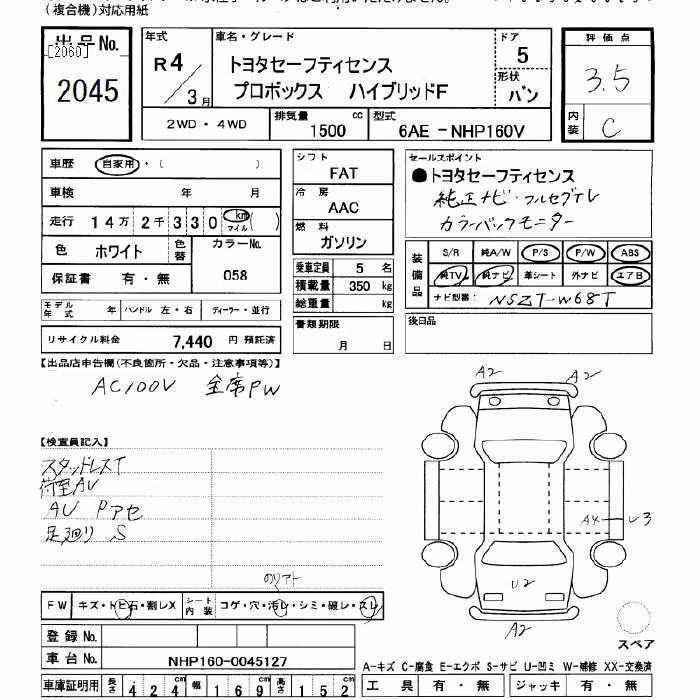 (複合機)対応用紙
出品No.
[2060]
2045
年式
R4/3月
車名・グレード
トヨタセーフティセンス
プロボックス ハイブリッドF
ドア
5
形状
バン
評価点
3.5
内装
C
2WD・4WD
排気量
1500 cc
型式
6AE-NHP160V
車歴 自家用・( )
車検 年 月
走行 14万2千330 km マイル ( )
色 ホワイト 色替 カラーNo. 058
保証書 有・無
モデル年式 年 ハンドル 左・右 ディーラー・並行
リサイクル料金 7,440 円 預託済
シフト
FAT
冷房
AAC
燃料
ガソリン
乗車定員 5 名
積載量 350 kg
総重量 kg
書類期限
月 日
セールスポイント
●トヨタセーフティセンス
純正ナビ・フルセグTV
カラーバックモニター
装備品
S/R 純A/W P/S P/W ABS
純TV 純ナビ 革シート 外ナビ エアB
ナビ型番 NSZT-W68T
後日品
【出品店申告欄(不良箇所・欠品・注意事項等)】
AC100V 全席PW
【検査員記入】
スタッドレスT
荷室AU
AU Pアセ
足廻り S
A2 A2
A4 U3
U2
A2
スペア
のりアト
FW キズ・トビ石・割レX シート内装 コゲ・穴・汚レ・シミ・破レ・スレ
登録No.
車台No. NHP160-0045127
車庫証明用 長さ 424cm 幅 169cm 高さ 152cm
A-キズ C-腐食 E-エクボ S-サビ U-凹ミ W-補修 XX-交換済
工具 有・無 ジャッキ 有・無